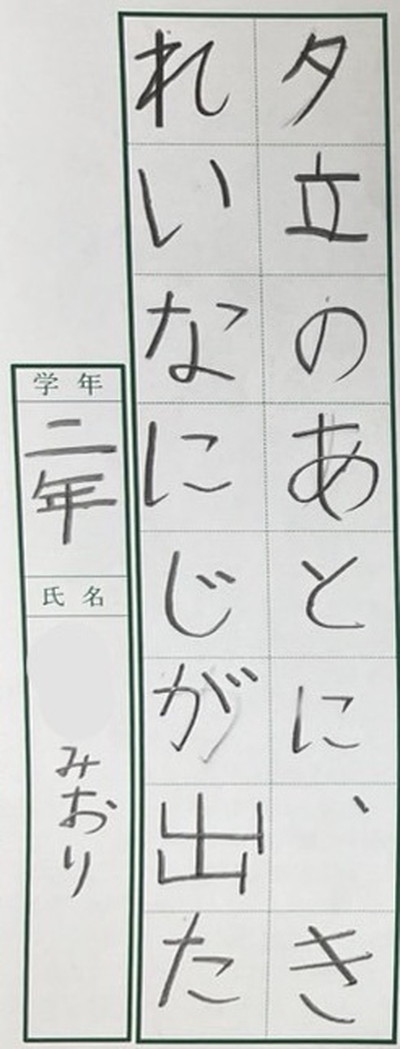 夕立のあとに、き
れいなにじが出た
学年
二年
氏名
みおり